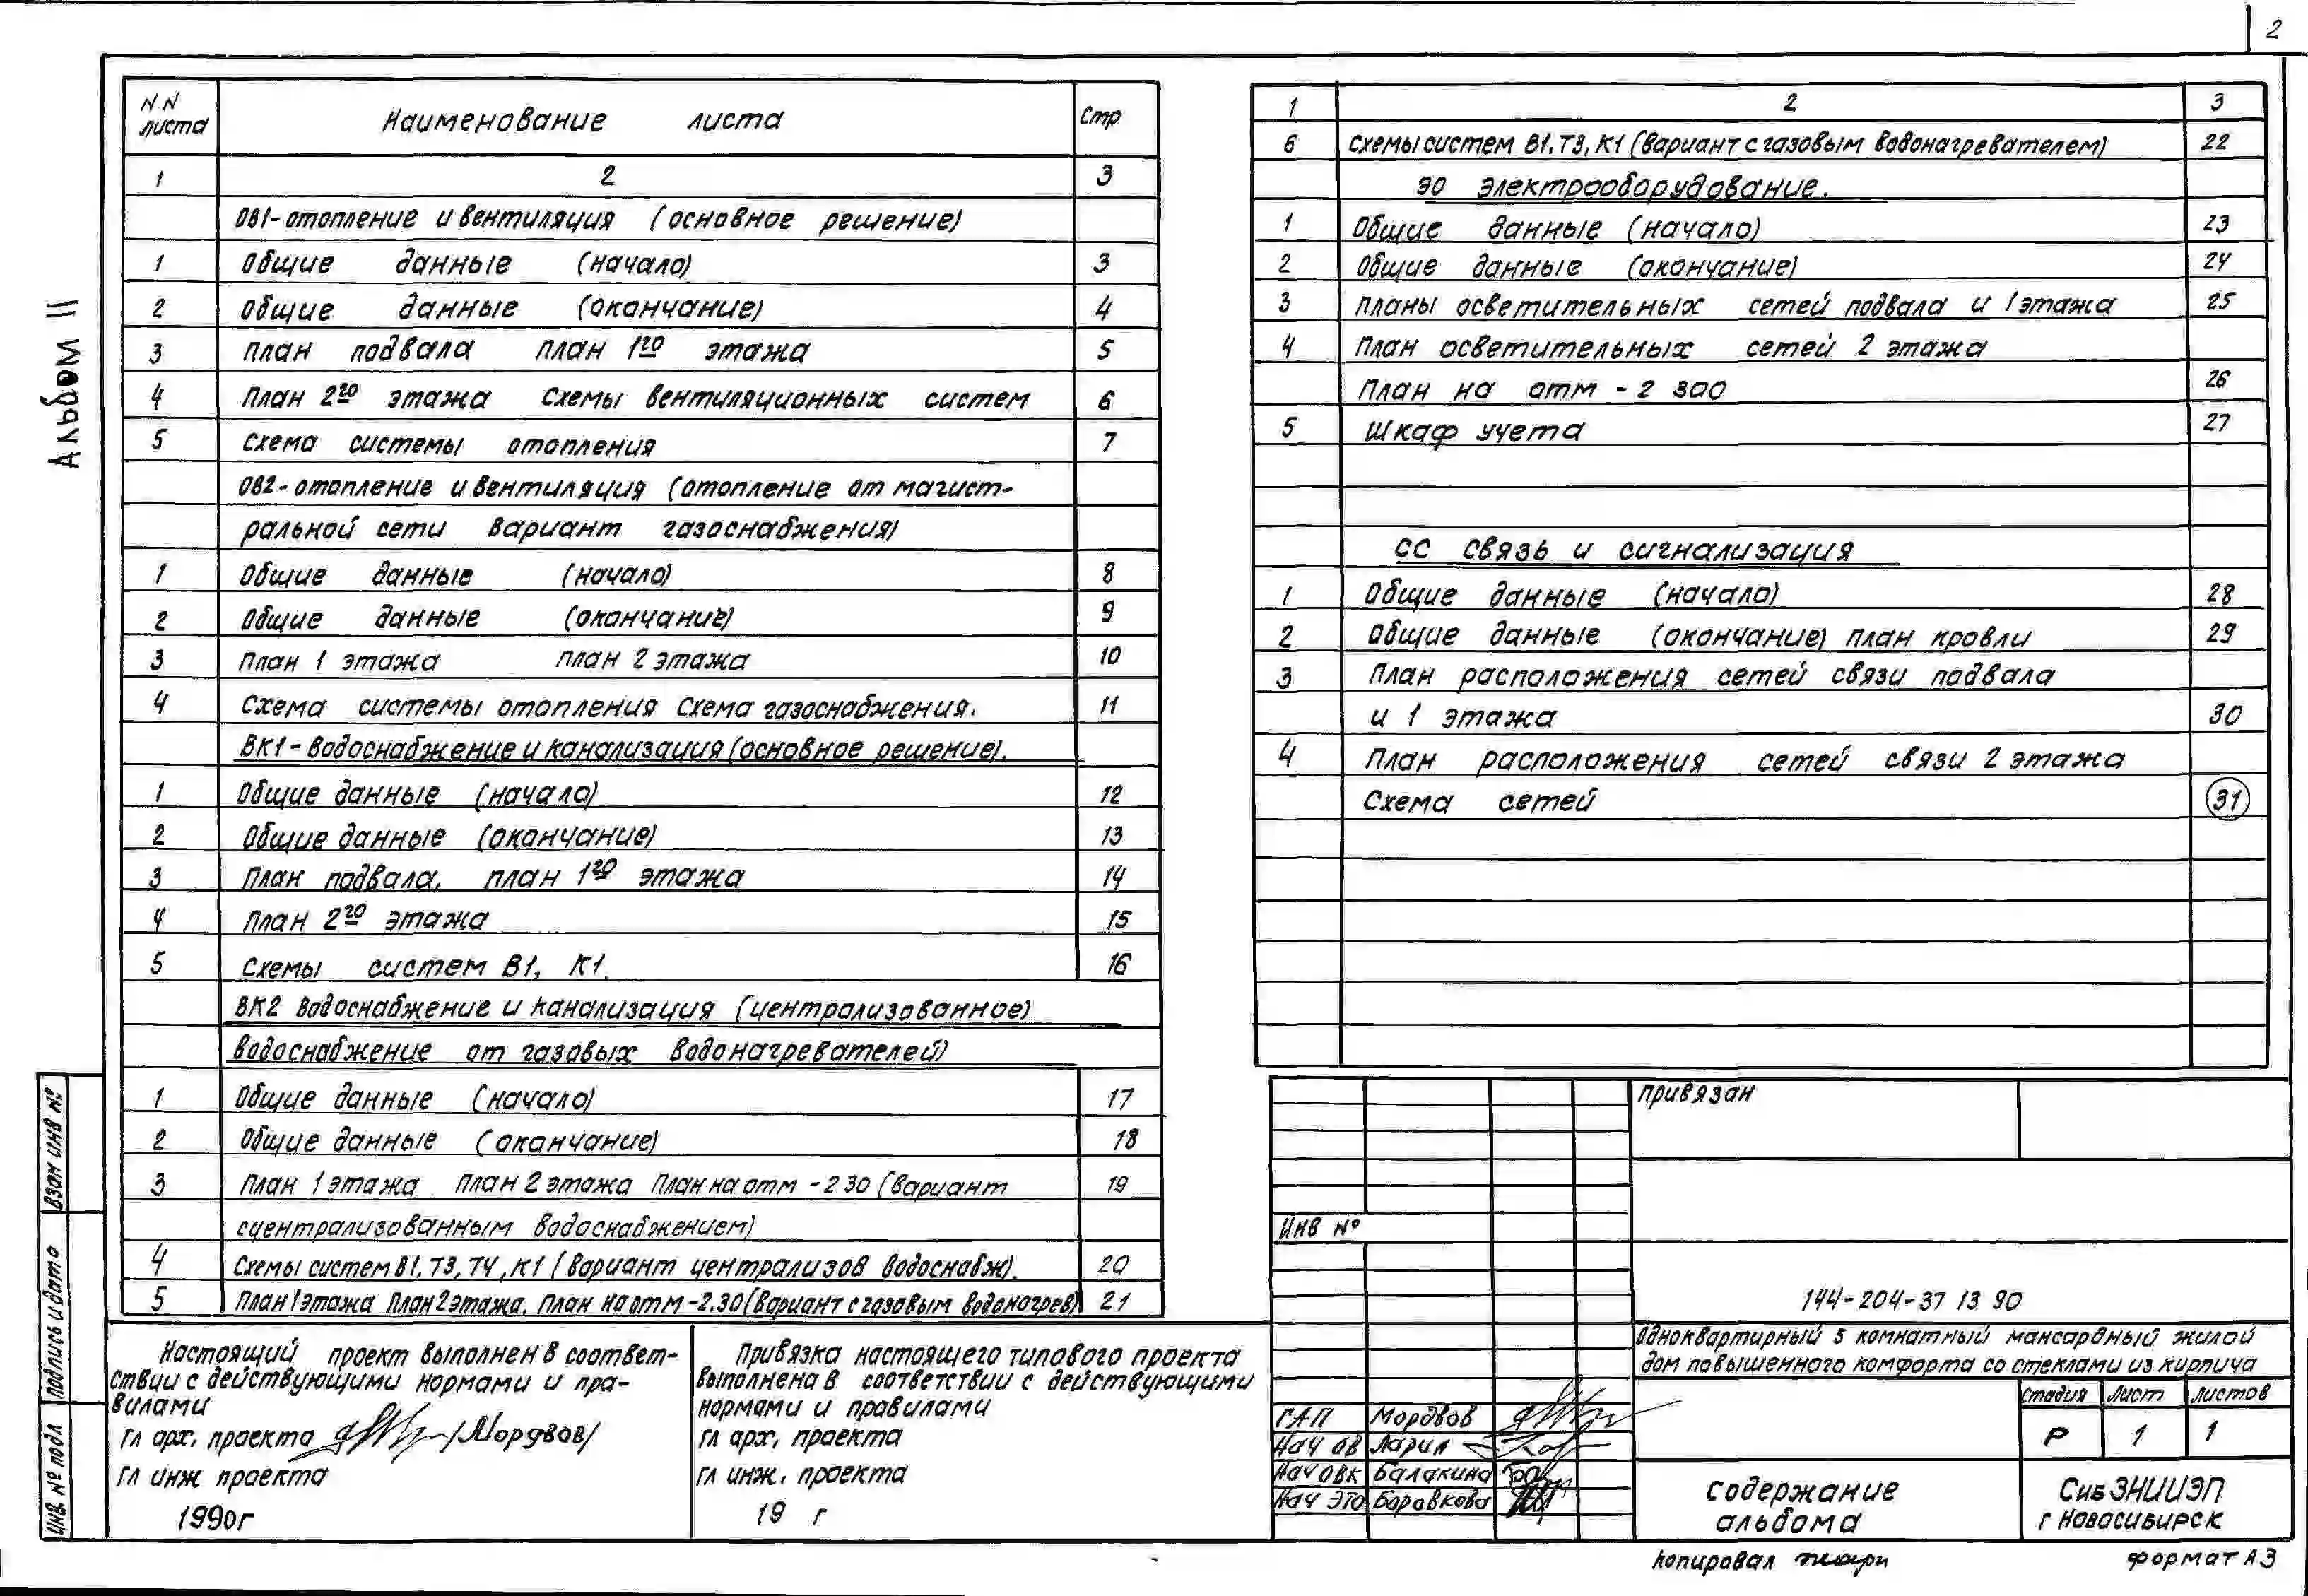 2
Альбом II
NN листа Наименование листа Стр
1 2 3
ОВ1-отопление и вентиляция (основное решение)
1 Общие данные (начало) 3
2 Общие данные (окончание) 4
3 План подвала план 1го этажа 5
4 План 2го этажа Схемы вентиляционных систем 6
5 Схема системы отопления 7
ОВ2-отопление и вентиляция (отопление от магист-
ральной сети вариант газоснабжения)
1 Общие данные (начало) 8
2 Общие данные (окончание) 9
3 План 1 этажа план 2 этажа 10
4 Схема системы отопления Схема газоснабжения. 11
ВК1-водоснабжение и канализация (основное решение).
1 Общие данные (начало) 12
2 Общие данные (окончание) 13
3 План подвала, план 1го этажа 14
4 План 2го этажа 15
5 Схемы систем В1, К1. 16
ВК2 водоснабжение и канализация (централизованное)
водоснабжение от газовых водонагревателей)
1 Общие данные (начало) 17
2 Общие данные (окончание) 18
3 План 1 этажа План 2 этажа План на отм -2 30 (вариант 19
сцентрализованным водоснабжением)
4 Схемы систем В1, Т3, Т4, К1 (вариант централизов водоснабж). 20
5 План 1 этажа План 2 этажа. План на отм -2.30 (вариант с газовым водонагрев) 21
1 2 3
6 Схемы систем В1, Т3, К1 (вариант с газовым водонагревателем) 22
ЭО электрооборудование.
1 Общие данные (начало) 23
2 Общие данные (окончание) 24
3 Планы осветительных сетей подвала и 1 этажа 25
4 План осветительных сетей 2 этажа
План на отм -2 300 26
5 Шкаф учета 27
СС связь и сигнализация
1 Общие данные (начало) 28
2 Общие данные (окончание) план кровли 29
3 План расположения сетей связи подвала
и 1 этажа 30
4 План расположения сетей связи 2 этажа
Схема сетей 31
Взам инв №
Подпись и дата
Инв № подл
Настоящий проект выполнен в соответ-
ствии с действующими нормами и пра-
вилами
Гл арх. проекта /Мордвов/
Гл инж проекта
1990г
Привязка настоящего типового проекта
выполнена в соответствии с действующими
нормами и правилами
Гл арх. проекта
Гл инж. проекта
19 г
Привязан
Инв №
144-204-37 13 90
Одноквартирный 5 комнатный мансардный жилой
дом повышенного комфорта со стеклами из кирпича
Стадия Лист Листов
Р 1 1
ГАП Мордвов
Нач ОВ Ларин
Нач ОВК Балакина
Нач ЭТО Боровкова
Содержание
альбома
СибЗНИИЭП
г Новосибирск
Копировал
формат А3